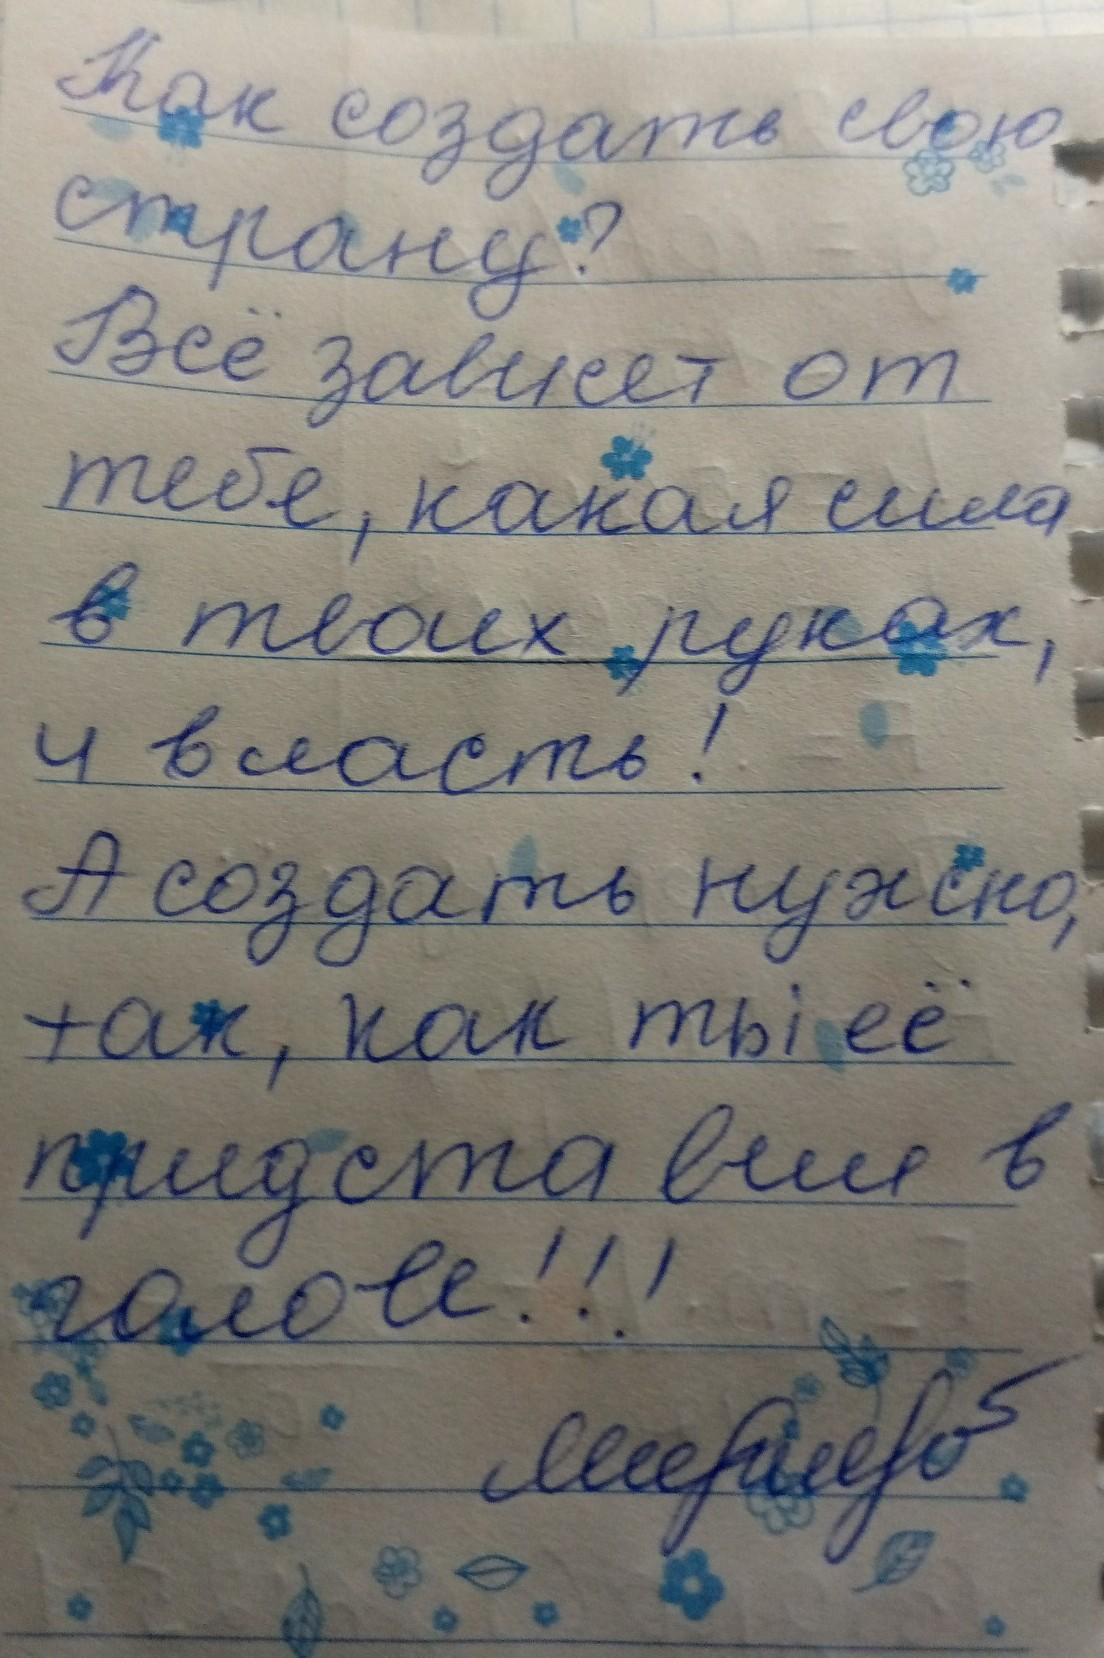 Как создать свою
страну?
Всё зависет от
тебе, какая сила
в твоих руках,
и власть!
А создать нужно,
так, как ты её
придставиш в
голове!!!